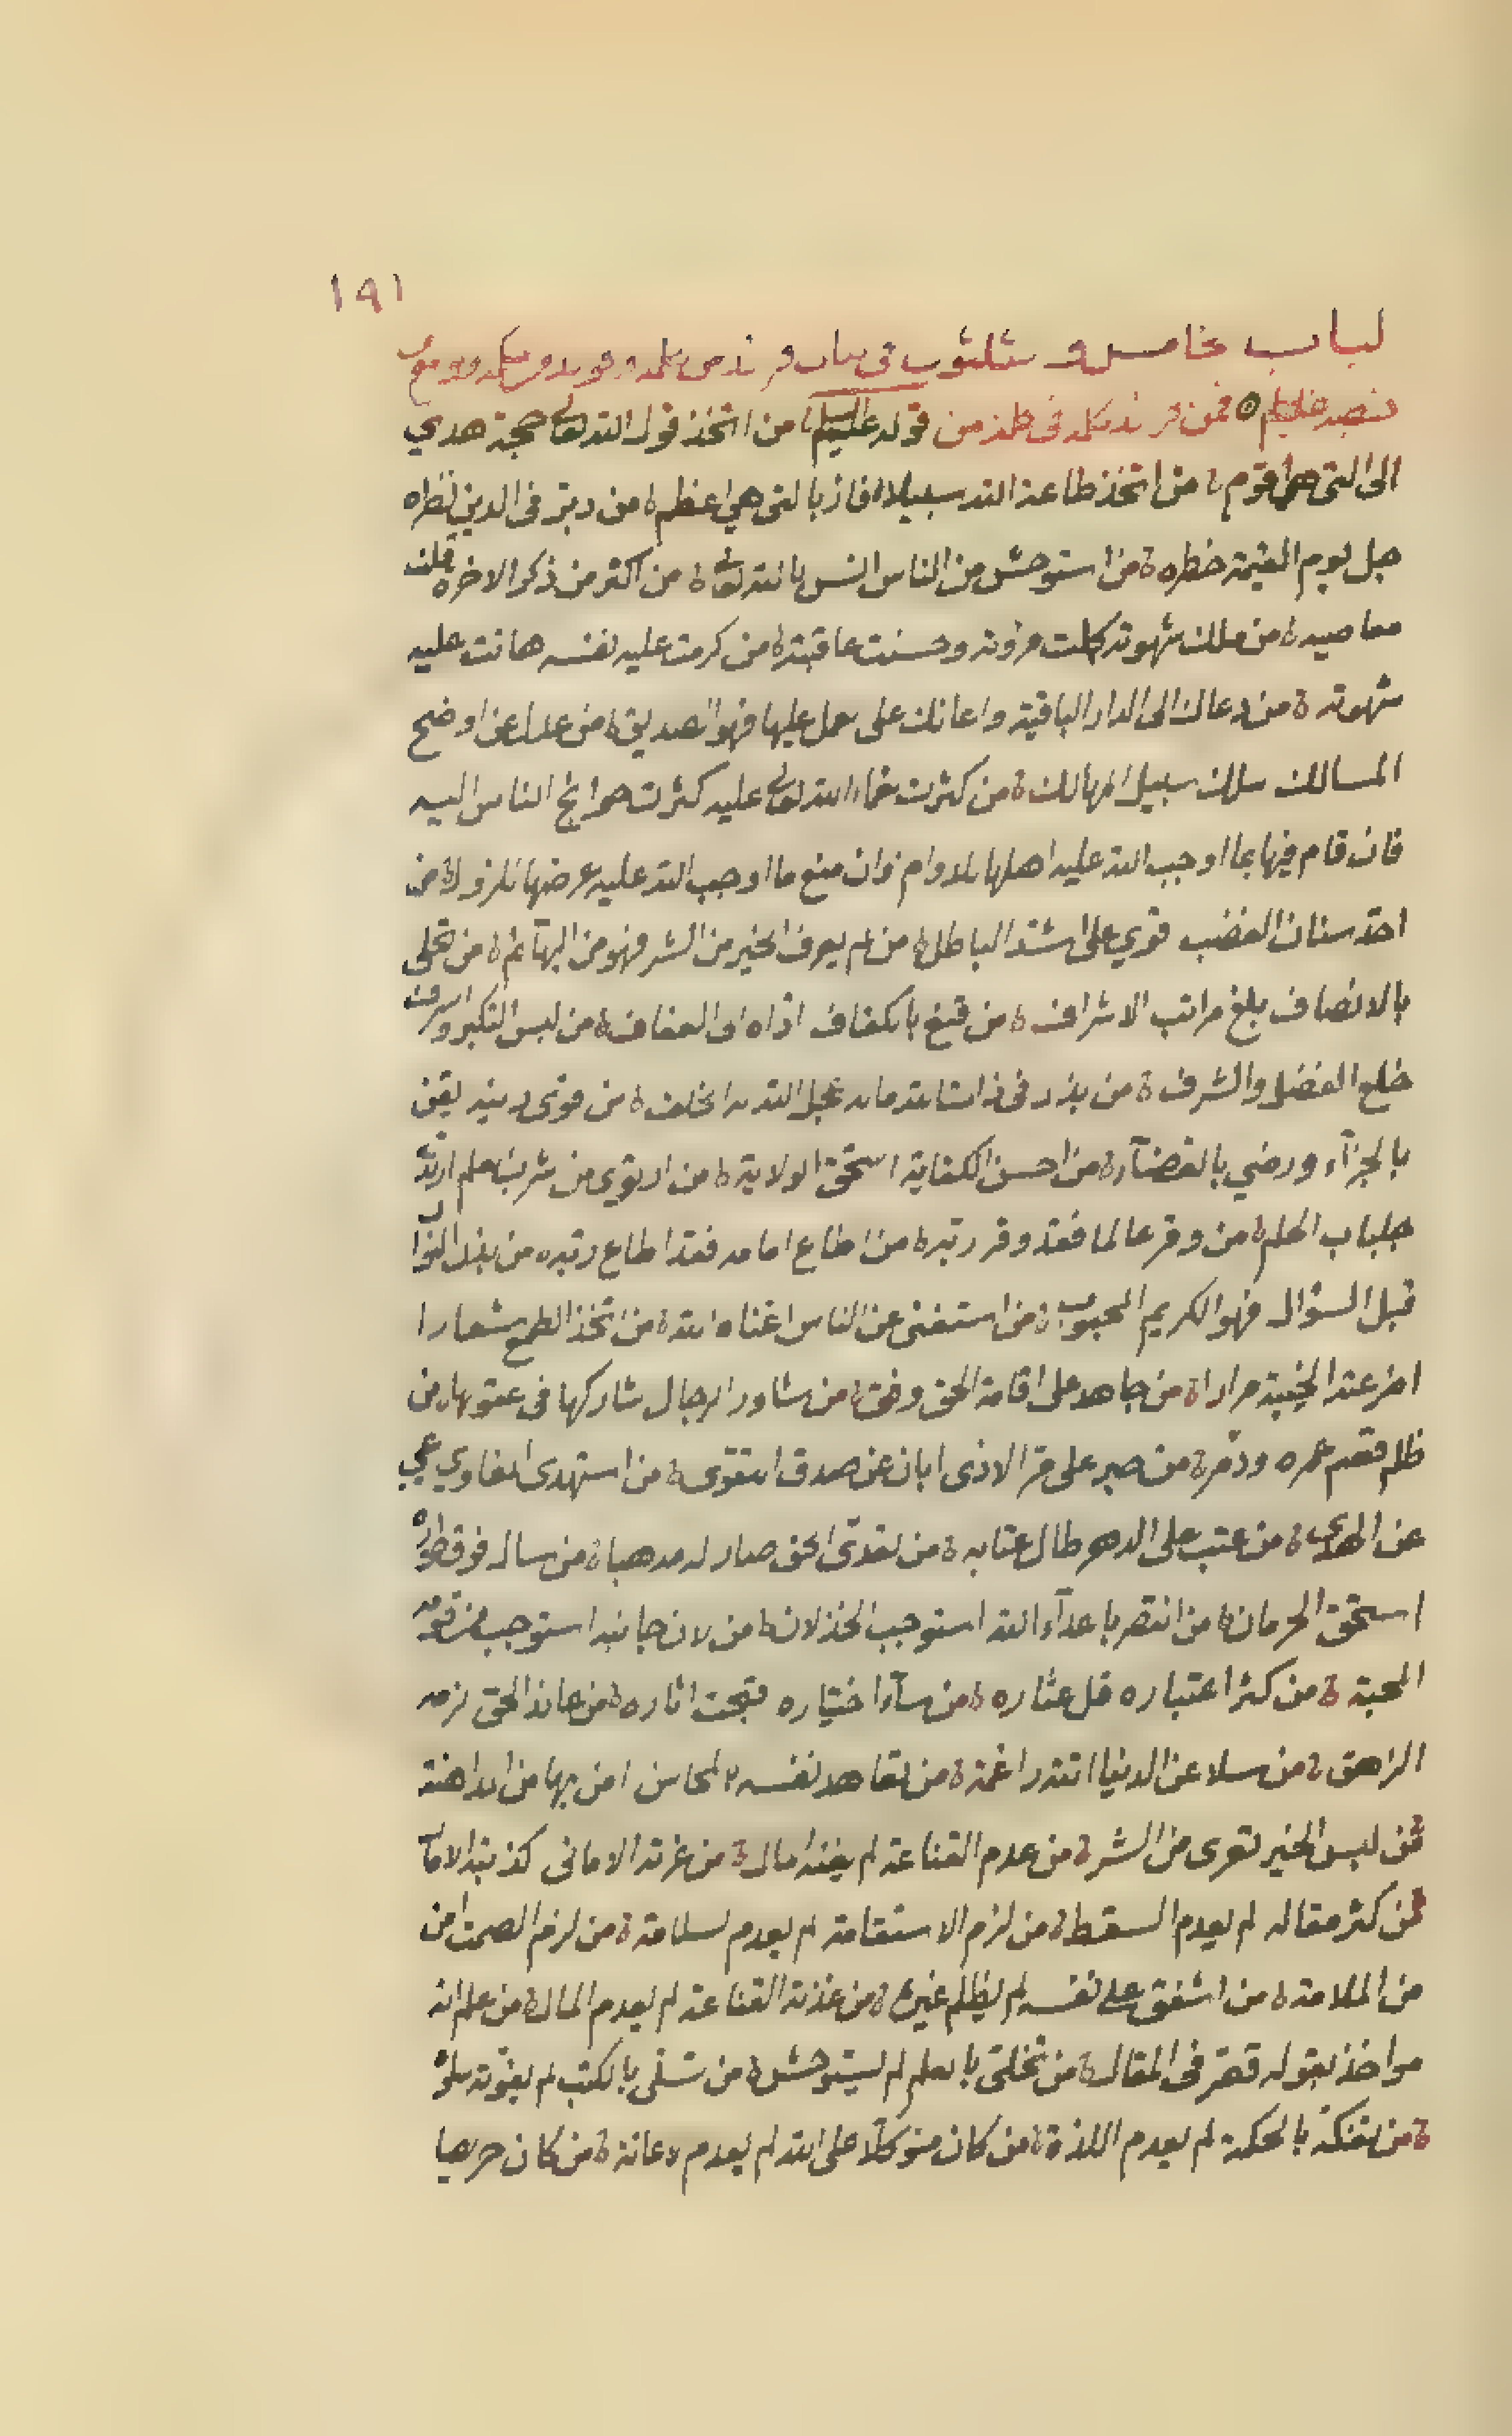 ١٩١
لباب خامس و ثلثون في
قوله عليه السلم من اتخذ قول الله تعالى حجة هدي
الى التي هي اقوم ة من اتخذ طاعة الله سبيلا فاز بالتي هي اعظم ة من دبر في الدين نظره
جل يوم القيمة خطره ة من استوحش من الناس انس بالله تعالى ة من اكثر من ذكر الاخرة قلت
معاصيه ة من ملك شهوته كملت مروته وحسنت عاقبته ة من كرمت عليه نفسه هانت عليه
شهوته ة من دعاك الى الدار الباقية واعانك على عمل عليها فهو الصديق ة من عدل عن اوضح
المسالك سلك سبيل المهالك ة من كثرت نعماء الله تعالى عليه كثرت حوائج الناس اليه
فان قام فيها بما اوجب الله عليه اهلها للدوام وان منع ما اوجب الله عليه عرضها للزوال ة من
احد سنان الغضب قوي على اشد الباطل ة من لم يعرف الخير من الشر فهو من البهآئم ة من تحلى
بالانصاف بلغ مراتب الاشراف ة من قنع بالكفاف اداه الى العفاف ة من لبس الكبر والسرف
خلع الفضل والشرف ة من بذل في ذات الله ماله عجل الله له الخلف ة من قوى دينه ايقن
بالجزآء ورضي بالقضآء ة من احسن الكفاية استحق الولاية ة من ارتوى من شرب علم ارتدا
جلباب الحلم ة من وقر عالما فقد وقر ربه ة من اطاع امامه فقد اطاع ربه ة من بذل النوال
قبل السؤال فهو الكريم المحبوب ة من استغنى عن الناس اغناه الله ة من اتخذ الطمع شعارا
جرعته الخيبة مرارا ة من جاهد على اقامة الحق وفق ة من شاور الرجال شاركها في عقولها ة من
ظلم قصم عمره ودمره ة من صبر على مر الاذى ابان عن صدق التقوى ة من استهدى الغاوي عمي
عن الهدى ة من عتب على الدهر طال عتابه ة من تعدى الحق صار له مذهبا ة من سال فوق قدره
استحق الحرمان ة من انتصر باعدآء الله استوجب الخذلان ة من لان جانبه استوجب من قومه
المحبة ة من كثر اعتباره قل عثاره ة من سآء اختياره قبحت اثاره ة من عاند الحق لزمه
الزهق ة من سلا عن الدنيا اتته راغمة ة من تعاهد نفسه بالمحاسن امن بها من المداهنة
ة من لبس الخير تعرى من الشر ة من عدم القناعة لم يغنه المال ة من غرته الاماني كذبته الامال
ة من كثر مقاله لم يعدم السقط ة من لزم الاستقامة لم يعدم السلامة ة من لزم الصمت امن
من الملامة ة من اشفق على نفسه لم يظلم غيره ة من عزته القناعة لم يعدم المال ة من علم انه
مواخذ بقوله قصر في المقال ة من تخلى بالعلم لم يستوحش ة من تسلى بالكتب لم يفوته سلو
ة من تفكه بالحكمة لم يعدم اللذة ة من كان متوكلا على الله لم يعدم الاعانة ة من كان حريصا